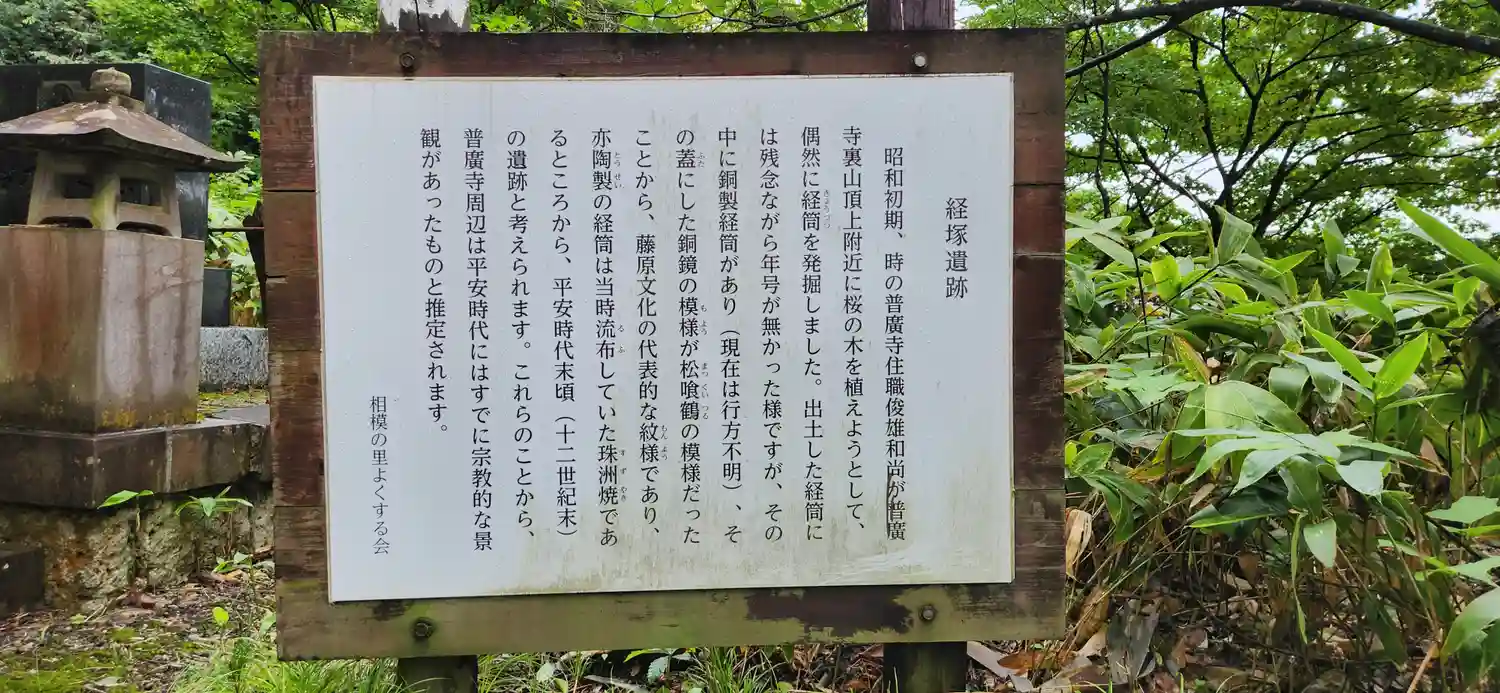 経塚遺跡
昭和初期、時の普廣寺住職俊雄和尚が普廣
寺裏山頂上附近に桜の木を植えようとして、
偶然に経筒を発掘しました。出土した経筒に
は残念ながら年号が無かった様ですが、その
中に銅製経筒があり（現在は行方不明）、そ
の蓋にした銅鏡の模様が松喰鶴の模様だった
ことから、藤原文化の代表的な紋様であり、
亦陶製の経筒は当時流布していた珠洲焼であ
るところから、平安時代末頃（十二世紀末）
の遺跡と考えられます。これらのことから、
普廣寺周辺は平安時代にはすでに宗教的な景
観があったものと推定されます。
相模の里よくする会